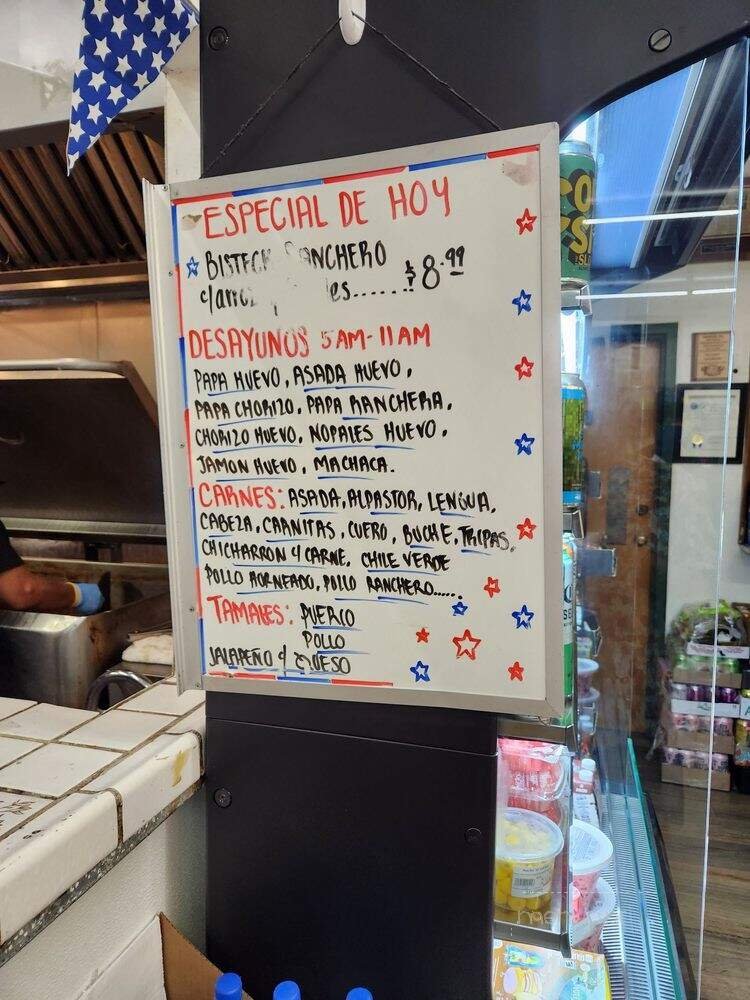 ESPECIAL DE HOY
BISTECK RANCHERO
c/arroz $8.99
DESAYUNOS 5AM-11AM
PAPA HUEVO, ASADA HUEVO,
PAPA CHORIZO, PAPA RANCHERA,
CHORIZO HUEVO, NOPALES HUEVO.
JAMON HUEVO, MACHACA.
CARNES: ASADA, ALPASTOR, LENGUA,
CABEZA, CARNITAS, CUERO, BUCHE, TRIPAS,
CHICHARRON Y CARNE, CHILE VERDE
POLLO HORNEADO, POLLO RANCHERO.....
TAMALES: PUERCO
POLLO
JALAPEÑO Y QUESO